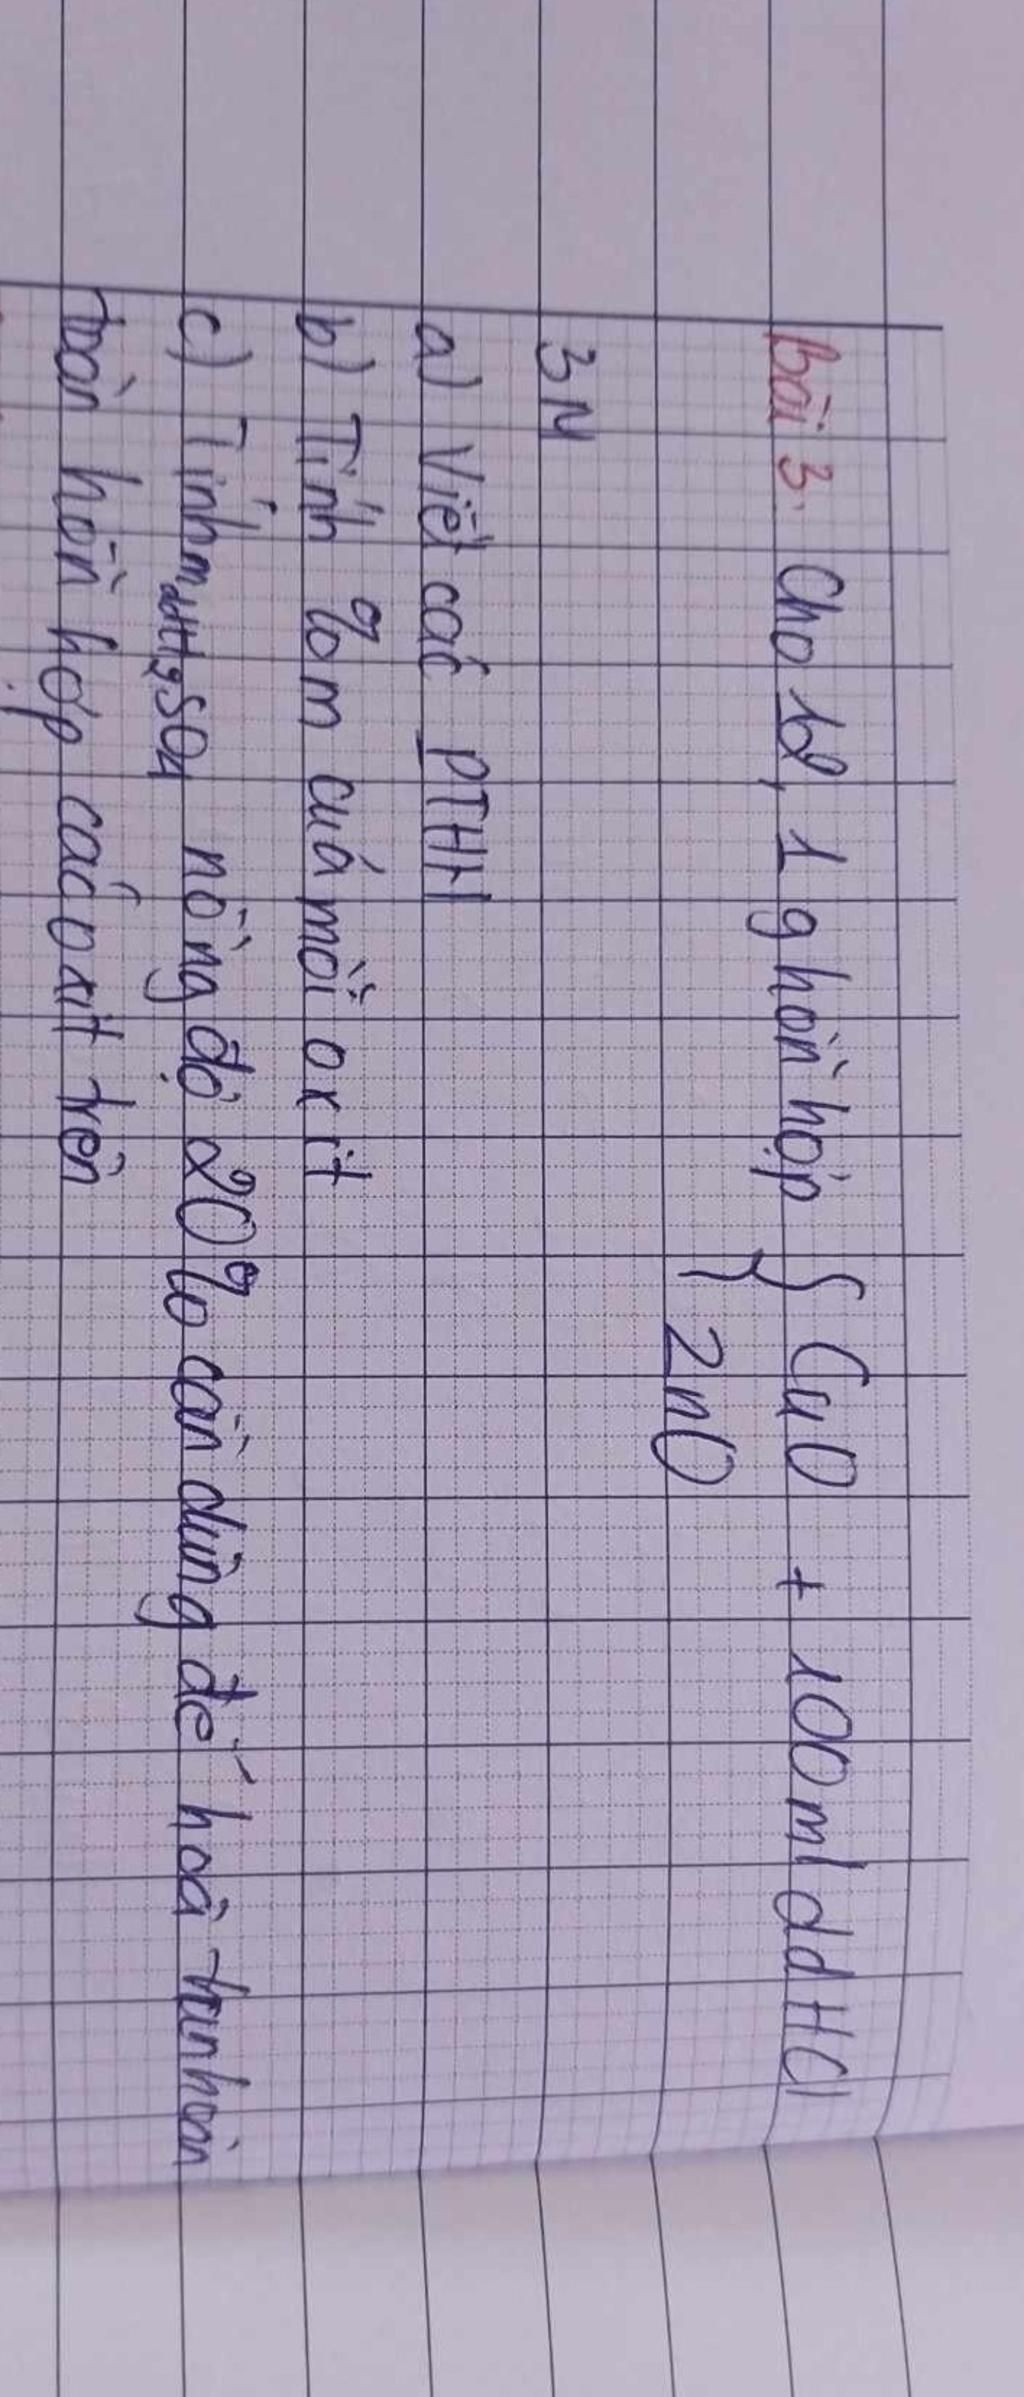 bài 3. Cho 12,1 g hỗn hợp { CuO + 100ml dd HCl
ZnO
3M
a) Viết các PTHH
b) Tính % m của mỗi oxit
c) Tính mddH2SO4 nồng độ 20% cần dùng để hoà tan hoàn
toàn hỗn hợp các oxit trên